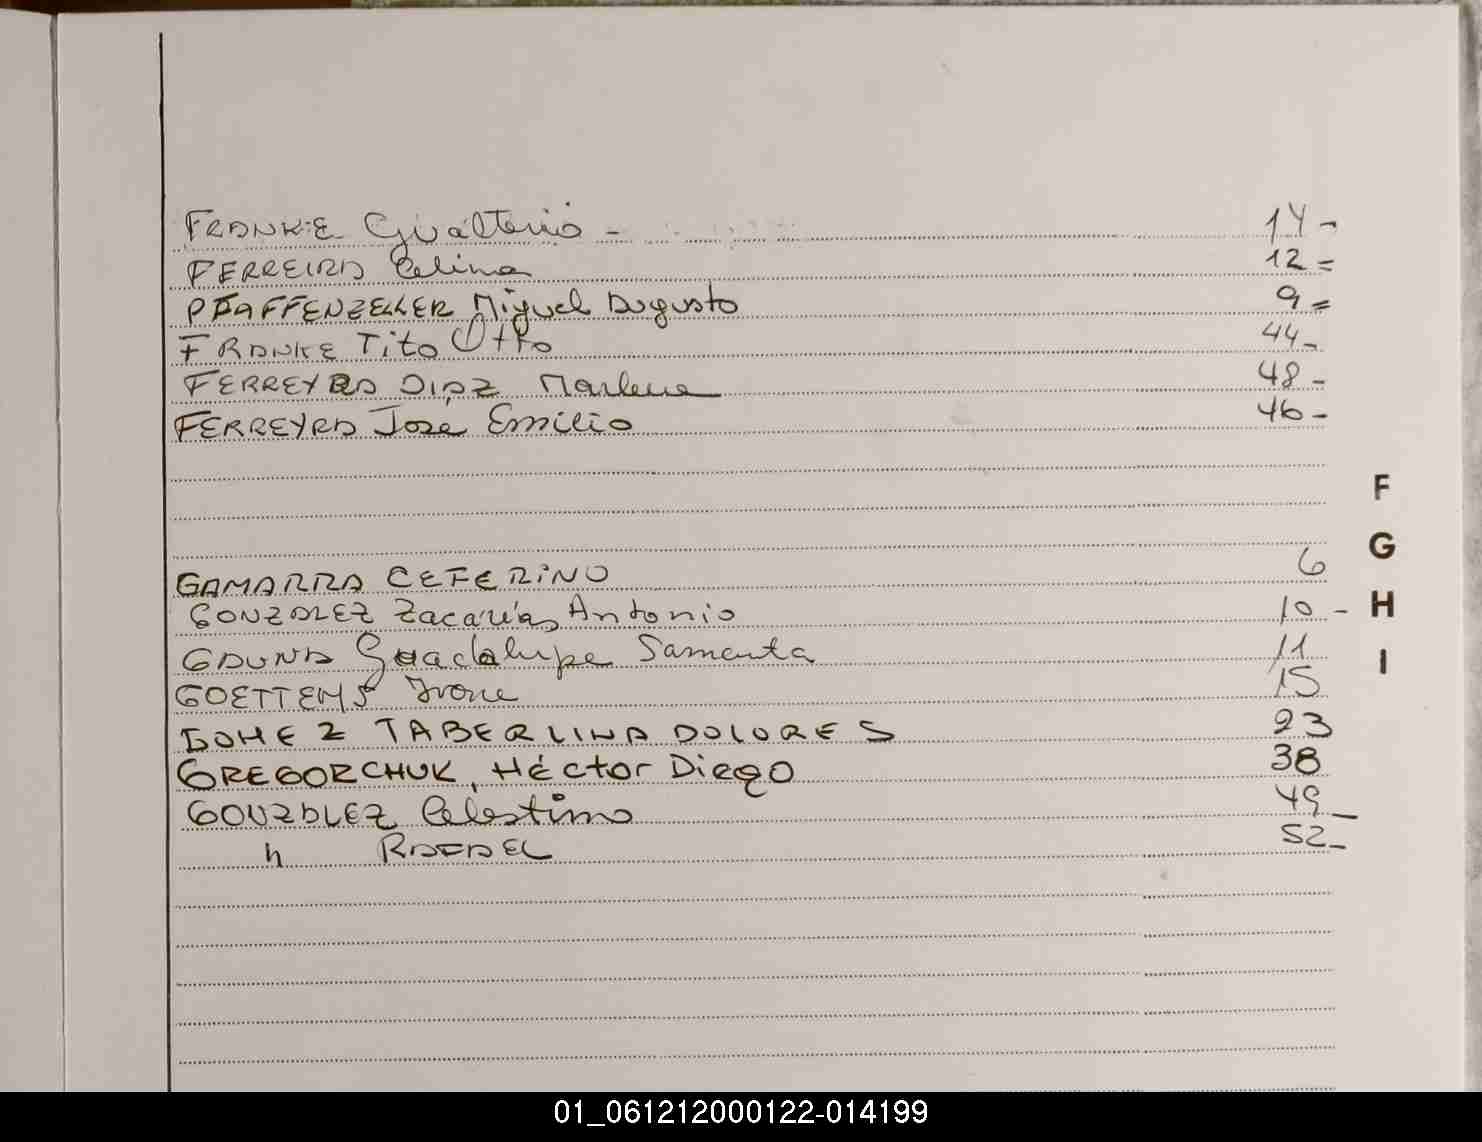 FRANKE Gualterio - 14 -
FERREIRA Celina 12 =
PFAFFENZELLER Miguel Augusto 9 =
FRANKE Tito Otto 44 -
FERREYRA DIAZ Marlene 48 -
FERREYRA José Emilio 46 -
F
G
H
I
GAMARRA CEFERINO 6
GONZALEZ Zacarías Antonio 10 -
GAUNA Guadalupe Samanta 11
GOETTEMS Ivone 15
GOMEZ TABERLINA DOLORES 23
GREGORCHUK, Héctor Diego 38
GONZALEZ Celestino 49 -
h RAFAEL 52 -
01_061212000122-014199